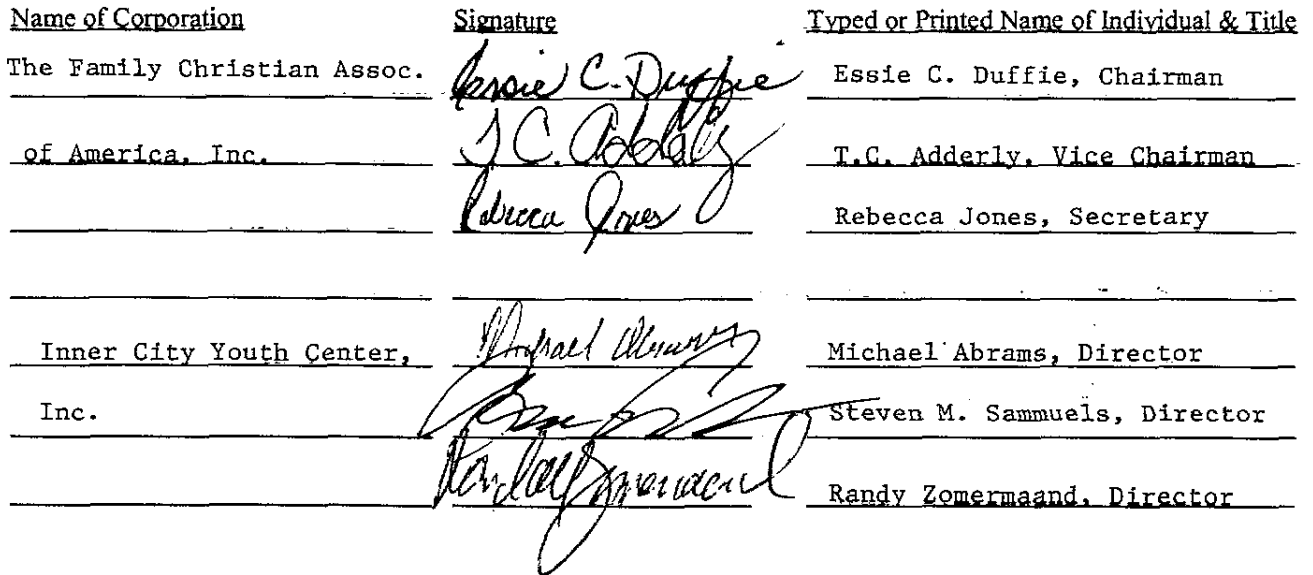 Name of Corporation Signature Typed or Printed Name of Individual & Title
The Family Christian Assoc. Essie C. Duffie Essie C. Duffie, Chairman
of America, Inc. T.C. Adderly T.C. Adderly, Vice Chairman
Rebecca Jones Rebecca Jones, Secretary
Inner City Youth Center, Michael Abrams Michael Abrams, Director
Inc. Steven M. Sammuels, Director
Randy Zomermaand, Director